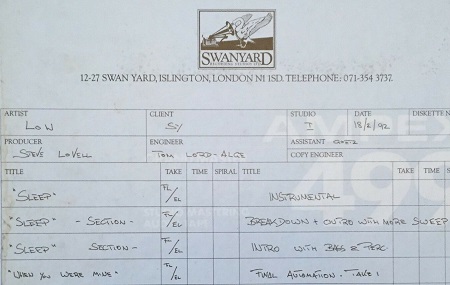 SWANYARD
12-27 SWAN YARD, ISLINGTON, LONDON N1 1SD. TELEPHONE: 071-354 3737.
ARTIST CLIENT STUDIO DATE DISKETTE N
LOW SY I 18/2/92
PRODUCER ENGINEER ASSISTANT GOETZ
STEVE LOVELL TOM LORD-ALGE COPY ENGINEER
TITLE TAKE TIME SPIRAL TITLE TAKE TIME S
"SLEEP" FL/EL INSTRUMENTAL
"SLEEP" - SECTION - FL/EL BREAKDOWN + OUTRO WITH MORE SWEEP
"SLEEP" SECTION - FL/EL INTRO WITH BASS & PERC.
"WHEN YOU WERE MINE" FL/EL FINAL AUTOMATION. TAKE 1
AMPEX
499